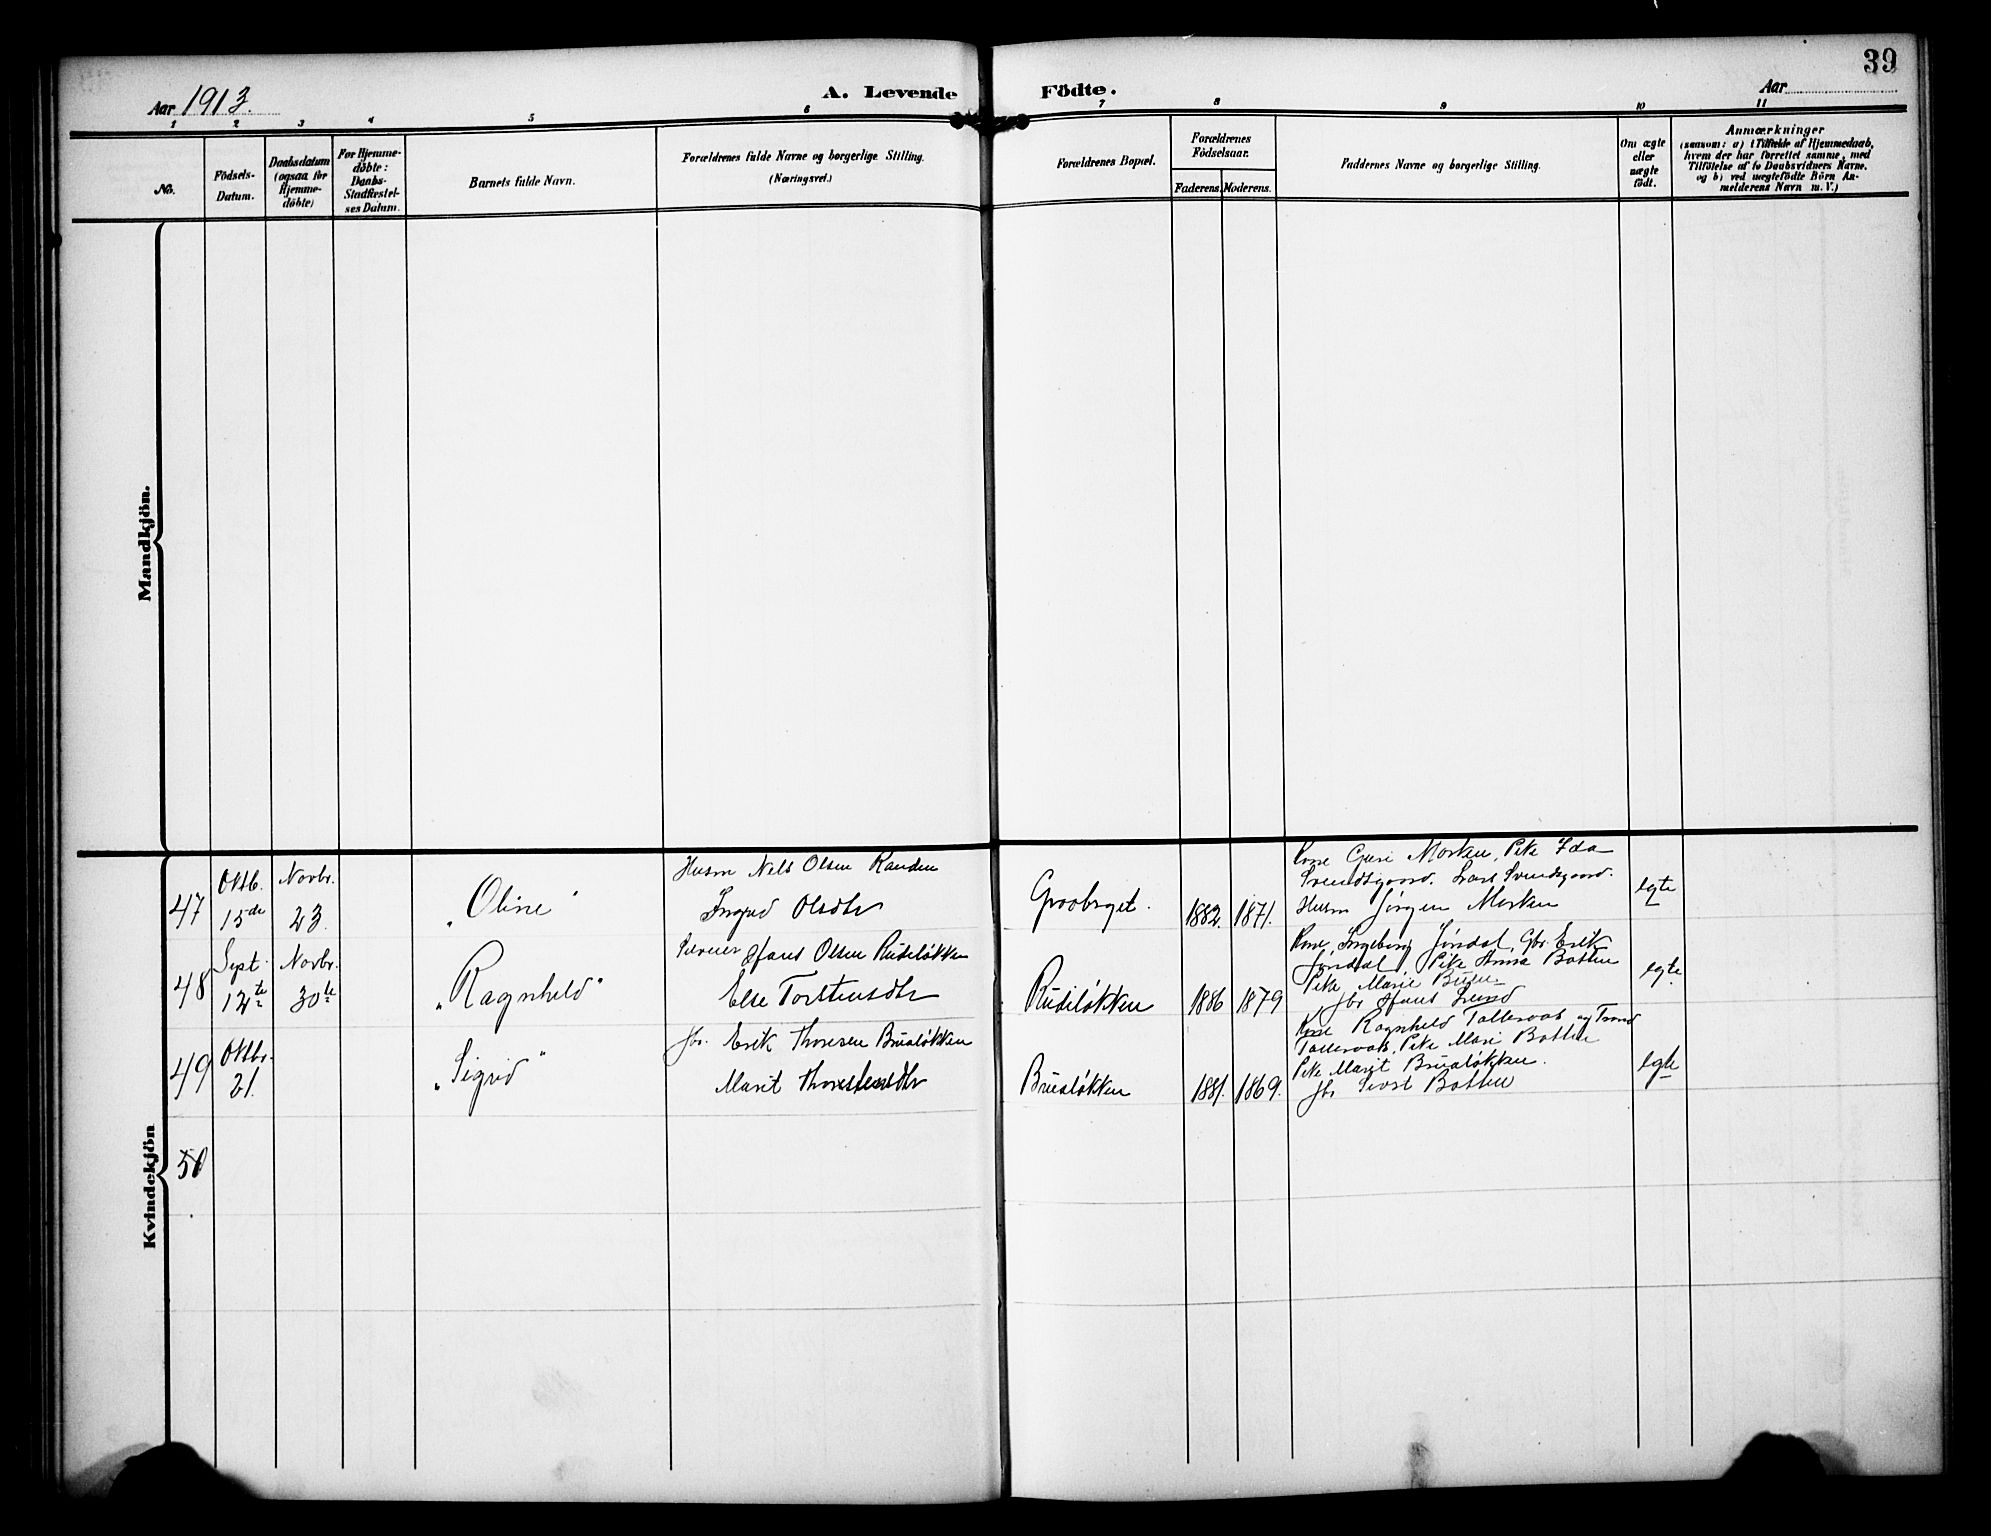 39
Aar 1913.
A. Levende Födte.
Aar
1 2 3 4 5 6 7 8 9 10 11
No.
Födsels-Datum.
Daabsdatum (ogsaa for Hjemme-döbte)
For Hjemme-döbte: Daabs-Stadfæstel-ses Datum.
Barnets fulde Navn.
Forældrenes fulde Navne og borgerlige Stilling. (Næringsvei.)
Forældrenes Bopæl.
Forældrenes Födselsaar.
Faderens. Moderens.
Faddernes Navne og borgerlige Stilling.
Om ægte eller uægte födt.
Anmærkninger
(saasom: a) i Tilfælde af Hjemmedaab,
hvem der har forrettet samme, med
Tilföielse af to Daabsvidners Navne,
og b) ved uægtefödte Börn An-
melderens Navn m. V.)
Mandkjön.
Kvindekjön
47
Oktb. 15de
Novbr. 23.
"Oline"
Husm Nels Olsen Randen
Ingrid Olsdtr
Groobryet.
1882. 1871.
Kone Guri Morken, Pike Ida
Svendsgaard. Lars Svendsgaard.
Husm Jørgen Morken
egte
48
Sept. 12te
Novbr. 30te
"Ragnheld"
Hans Olsen Rudiløkken
Else Torstensdtr
Rudiløkken
1886 1879
Kone Ingeborg Jøndal, Gbr. Erik
Jøndal, Pike Anna Batten
Pike Marie
Gbr Hans Lund
egte.
49
Oktbr. 21.
"Sigrid"
Gbr. Erik Thoresen Brualøkken
Marit Thorstensdtr
Brualøkken
1881. 1869.
Kone Ragnheld Talleraas og Trond
Talleraas, Pike Mari Batten
Pike Marit Brualøkken.
Gbr Sivert Batten
egte
50